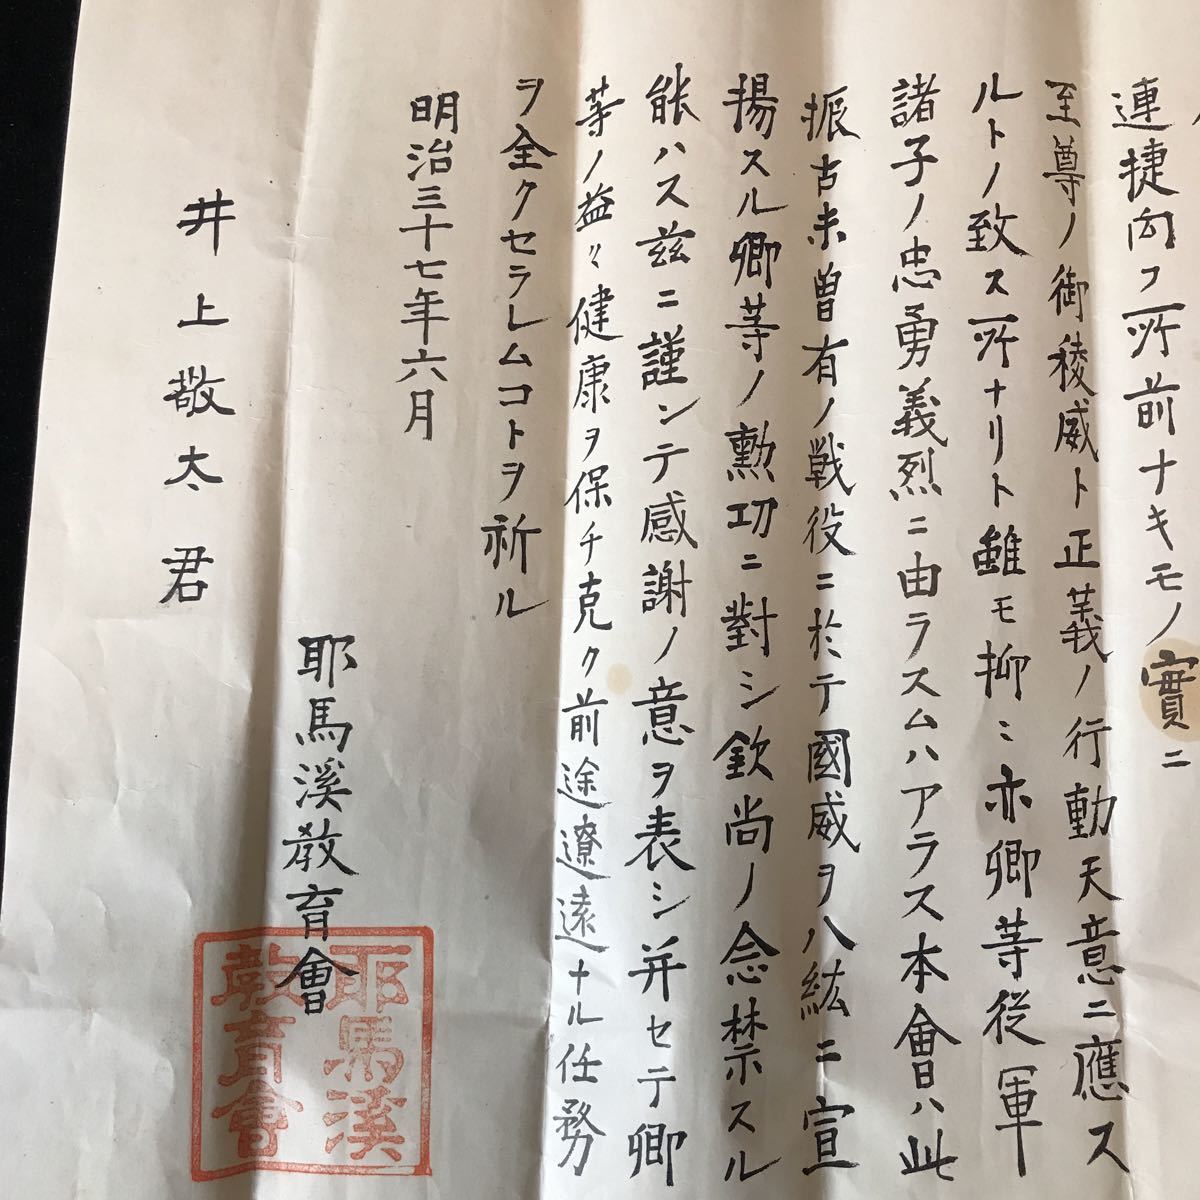 連捷向フ所前ナキモノ實ニ
至尊ノ御稜威ト正義ノ行動天意ニ應ス
ルトノ致ス所ナリト雖モ抑ミ亦卿等従軍
諸子ノ忠勇義烈ニ由ラスムハアラス本會ハ此
振古未曽有ノ戦役ニ於テ國威ヲ八紘ニ宣
揚スル卿等ノ勲功ニ對シ欽尚ノ念禁スル
能ハス茲ニ謹ンテ感謝ノ意ヲ表シ并セテ卿
等ノ益々健康ヲ保チ克ク前途遼遠ナル任務
ヲ全クセラレムコトヲ祈ル
明治三十七年六月
耶馬溪教育會
井上敬太君
耶馬溪
教育會